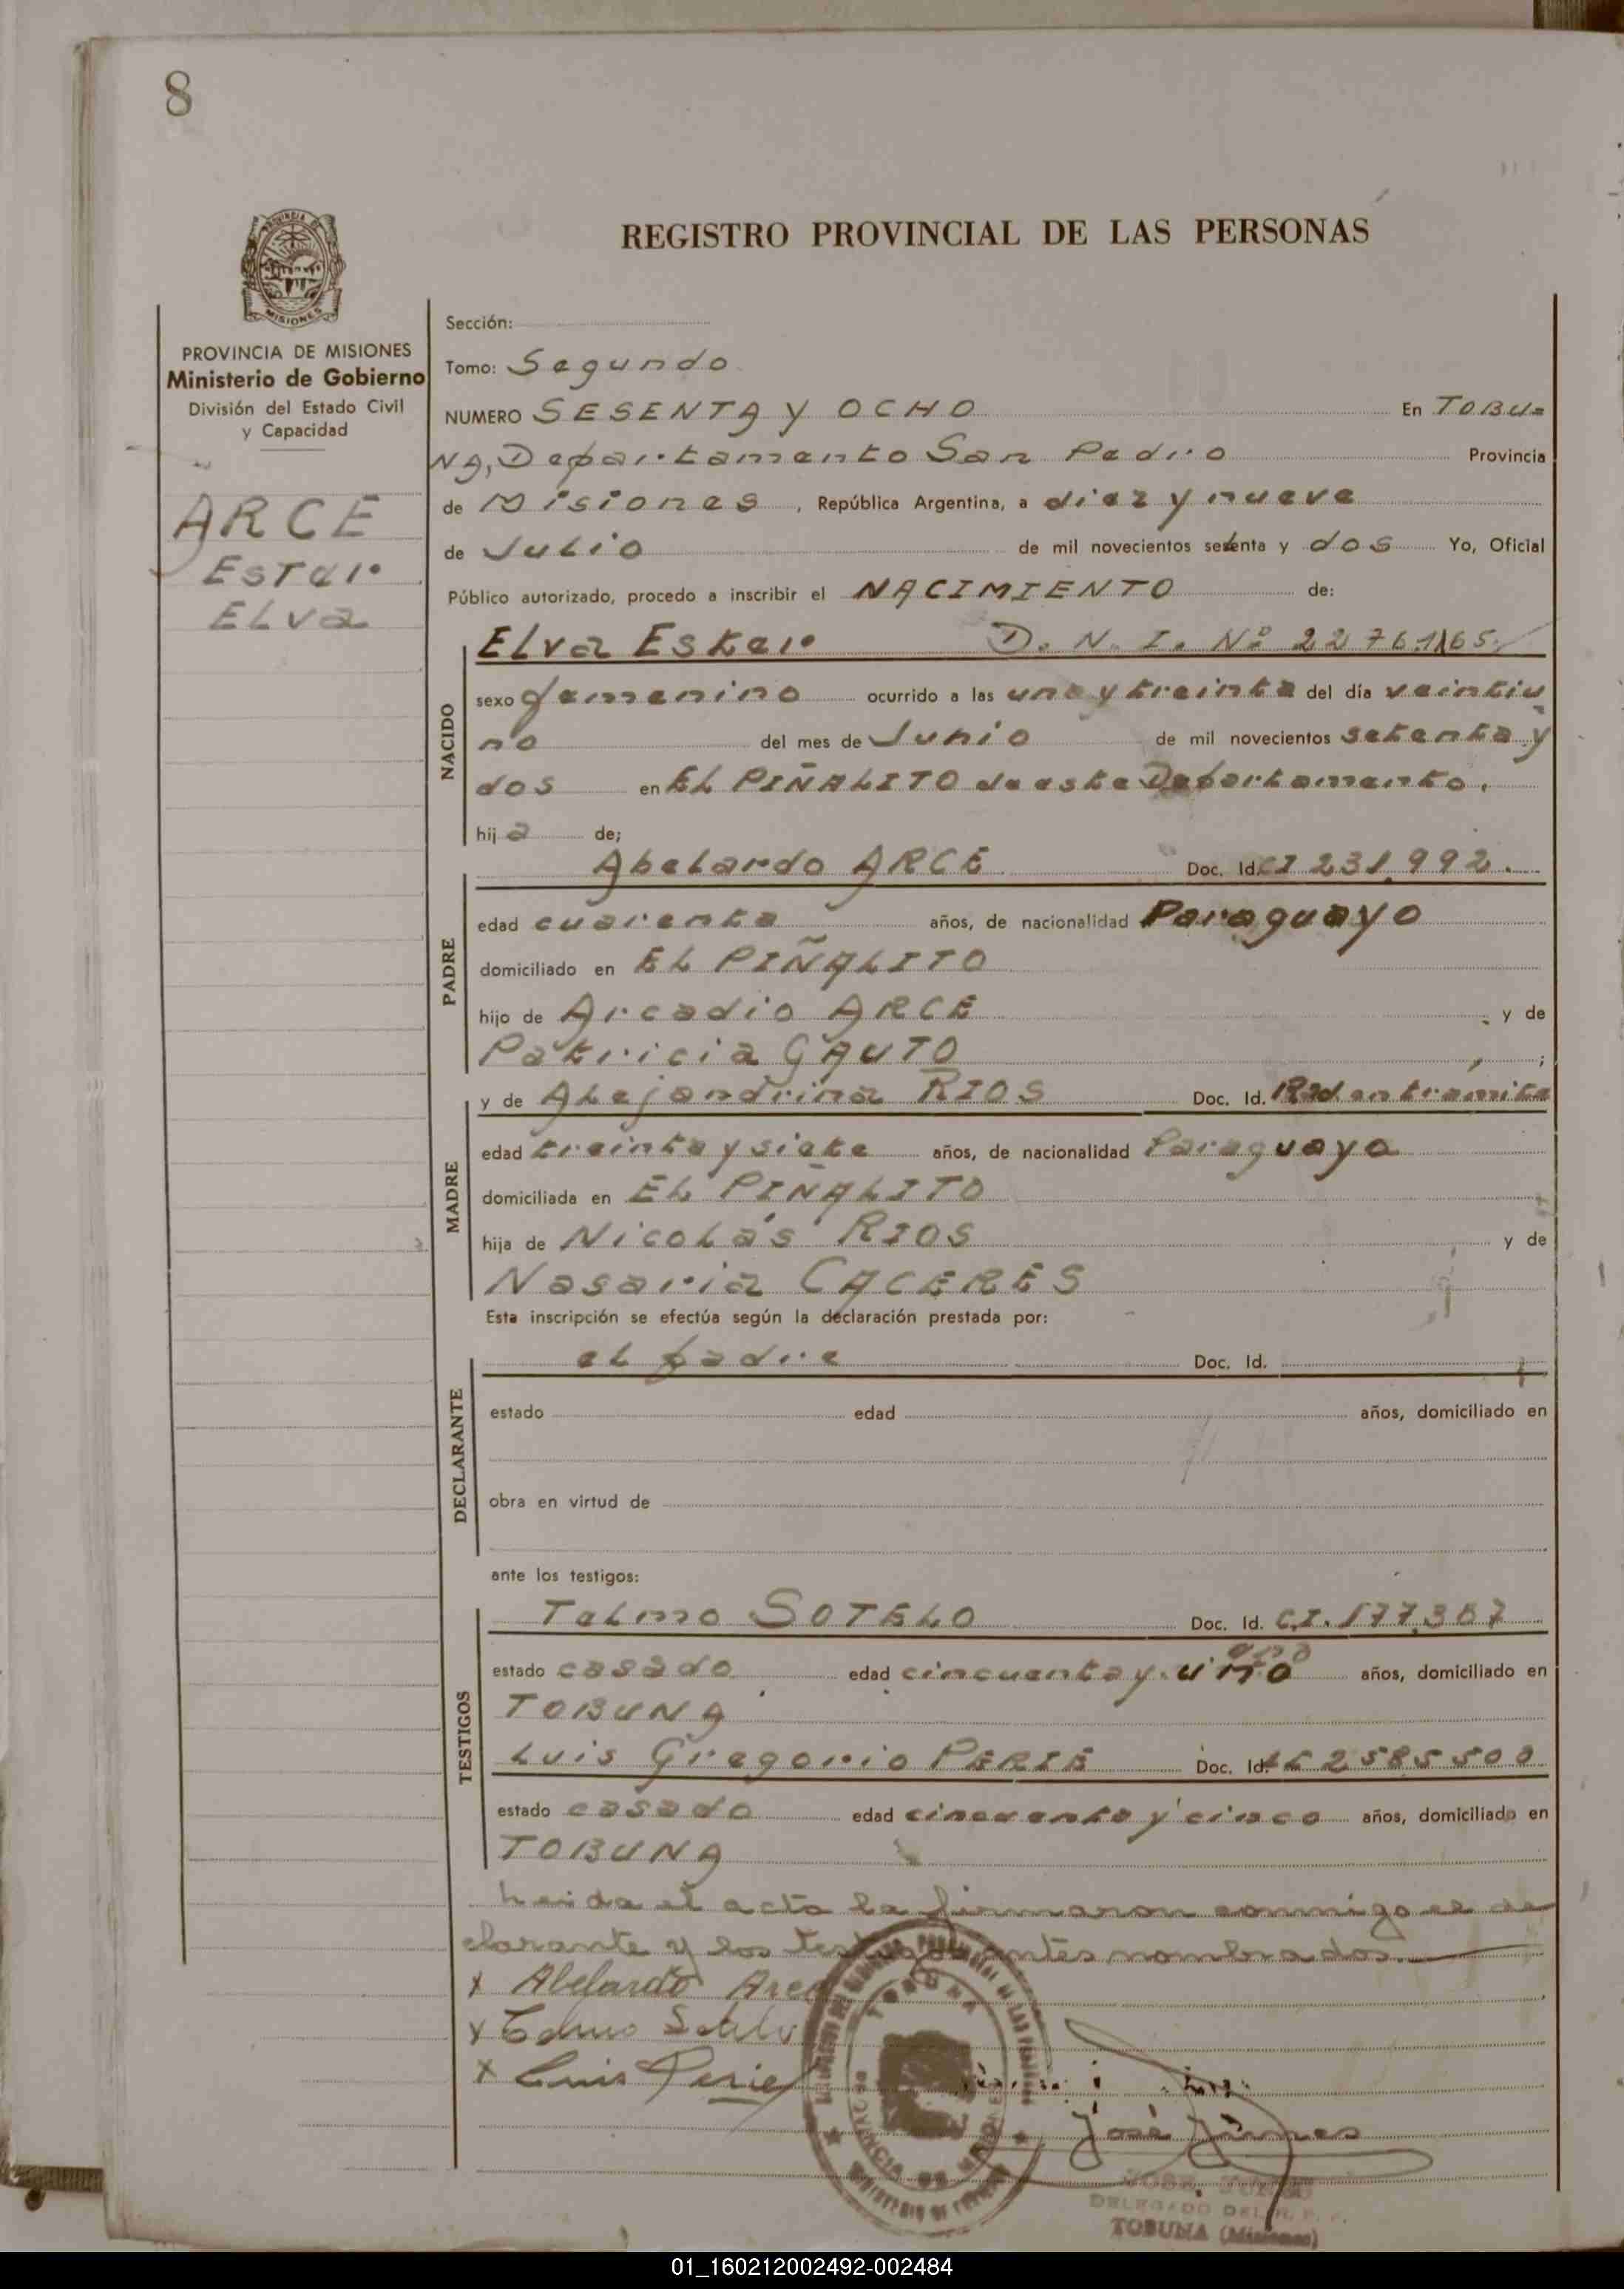 8
REGISTRO PROVINCIAL DE LAS PERSONAS
MISIONES
PROVINCIA DE MISIONES
Ministerio de Gobierno
División del Estado Civil
y Capacidad
ARCE
Ester
ELva
Sección:
Tomo: Segundo
NUMERO SESENTA y OCHO En TOBU=
NA, Departamento San Pedro Provincia
de Misiones, República Argentina, a diez y nueve
de Julio de mil novecientos setenta y dos Yo, Oficial
Público autorizado, procedo a inscribir el NACIMIENTO de:
Elva Ester D. N. I. Nº 22.761.165
NACIDO
sexo femenino ocurrido a las una y treinta del día veintiu
no del mes de Junio de mil novecientos setenta y
dos en EL PIÑALITO de este Departamento.
hija de;
Abelardo ARCE Doc. Id. CI 231.992.
PADRE
edad cuarenta años, de nacionalidad Paraguayo
domiciliado en EL PIÑALITO
hijo de Arcadio ARCE y de
Patricia GAUTO ;
MADRE
y de Alejandrina RIOS Doc. Id. Rad en trámite
edad treinta y siete años, de nacionalidad Paraguaya
domiciliada en EL PIÑALITO
hija de Nicolás RIOS y de
Nasaria CACERES
Esta inscripción se efectúa según la declaración prestada por:
DECLARANTE
el padre Doc. Id.
estado edad años, domiciliado en
obra en virtud de
ante los testigos:
TESTIGOS
Telmo SOTELO Doc. Id. C.I. 177.387
estado casado edad cincuenta y uno años, domiciliado en
TOBUNA
Luis Gregorio PERIE Doc. Id. LE 2585500
estado casado edad cincuenta y cinco años, domiciliado en
TOBUNA
Leida el acta la firmaron conmigo el de
clarante y los testigos antes nombrados.
x Abelardo Arce
x Telmo Sotelo
x Luis Perie
TOBUNA
José Junes
DELEGADO DEL R. P. P.
TOBUNA (Misiones)
01_160212002492-002484